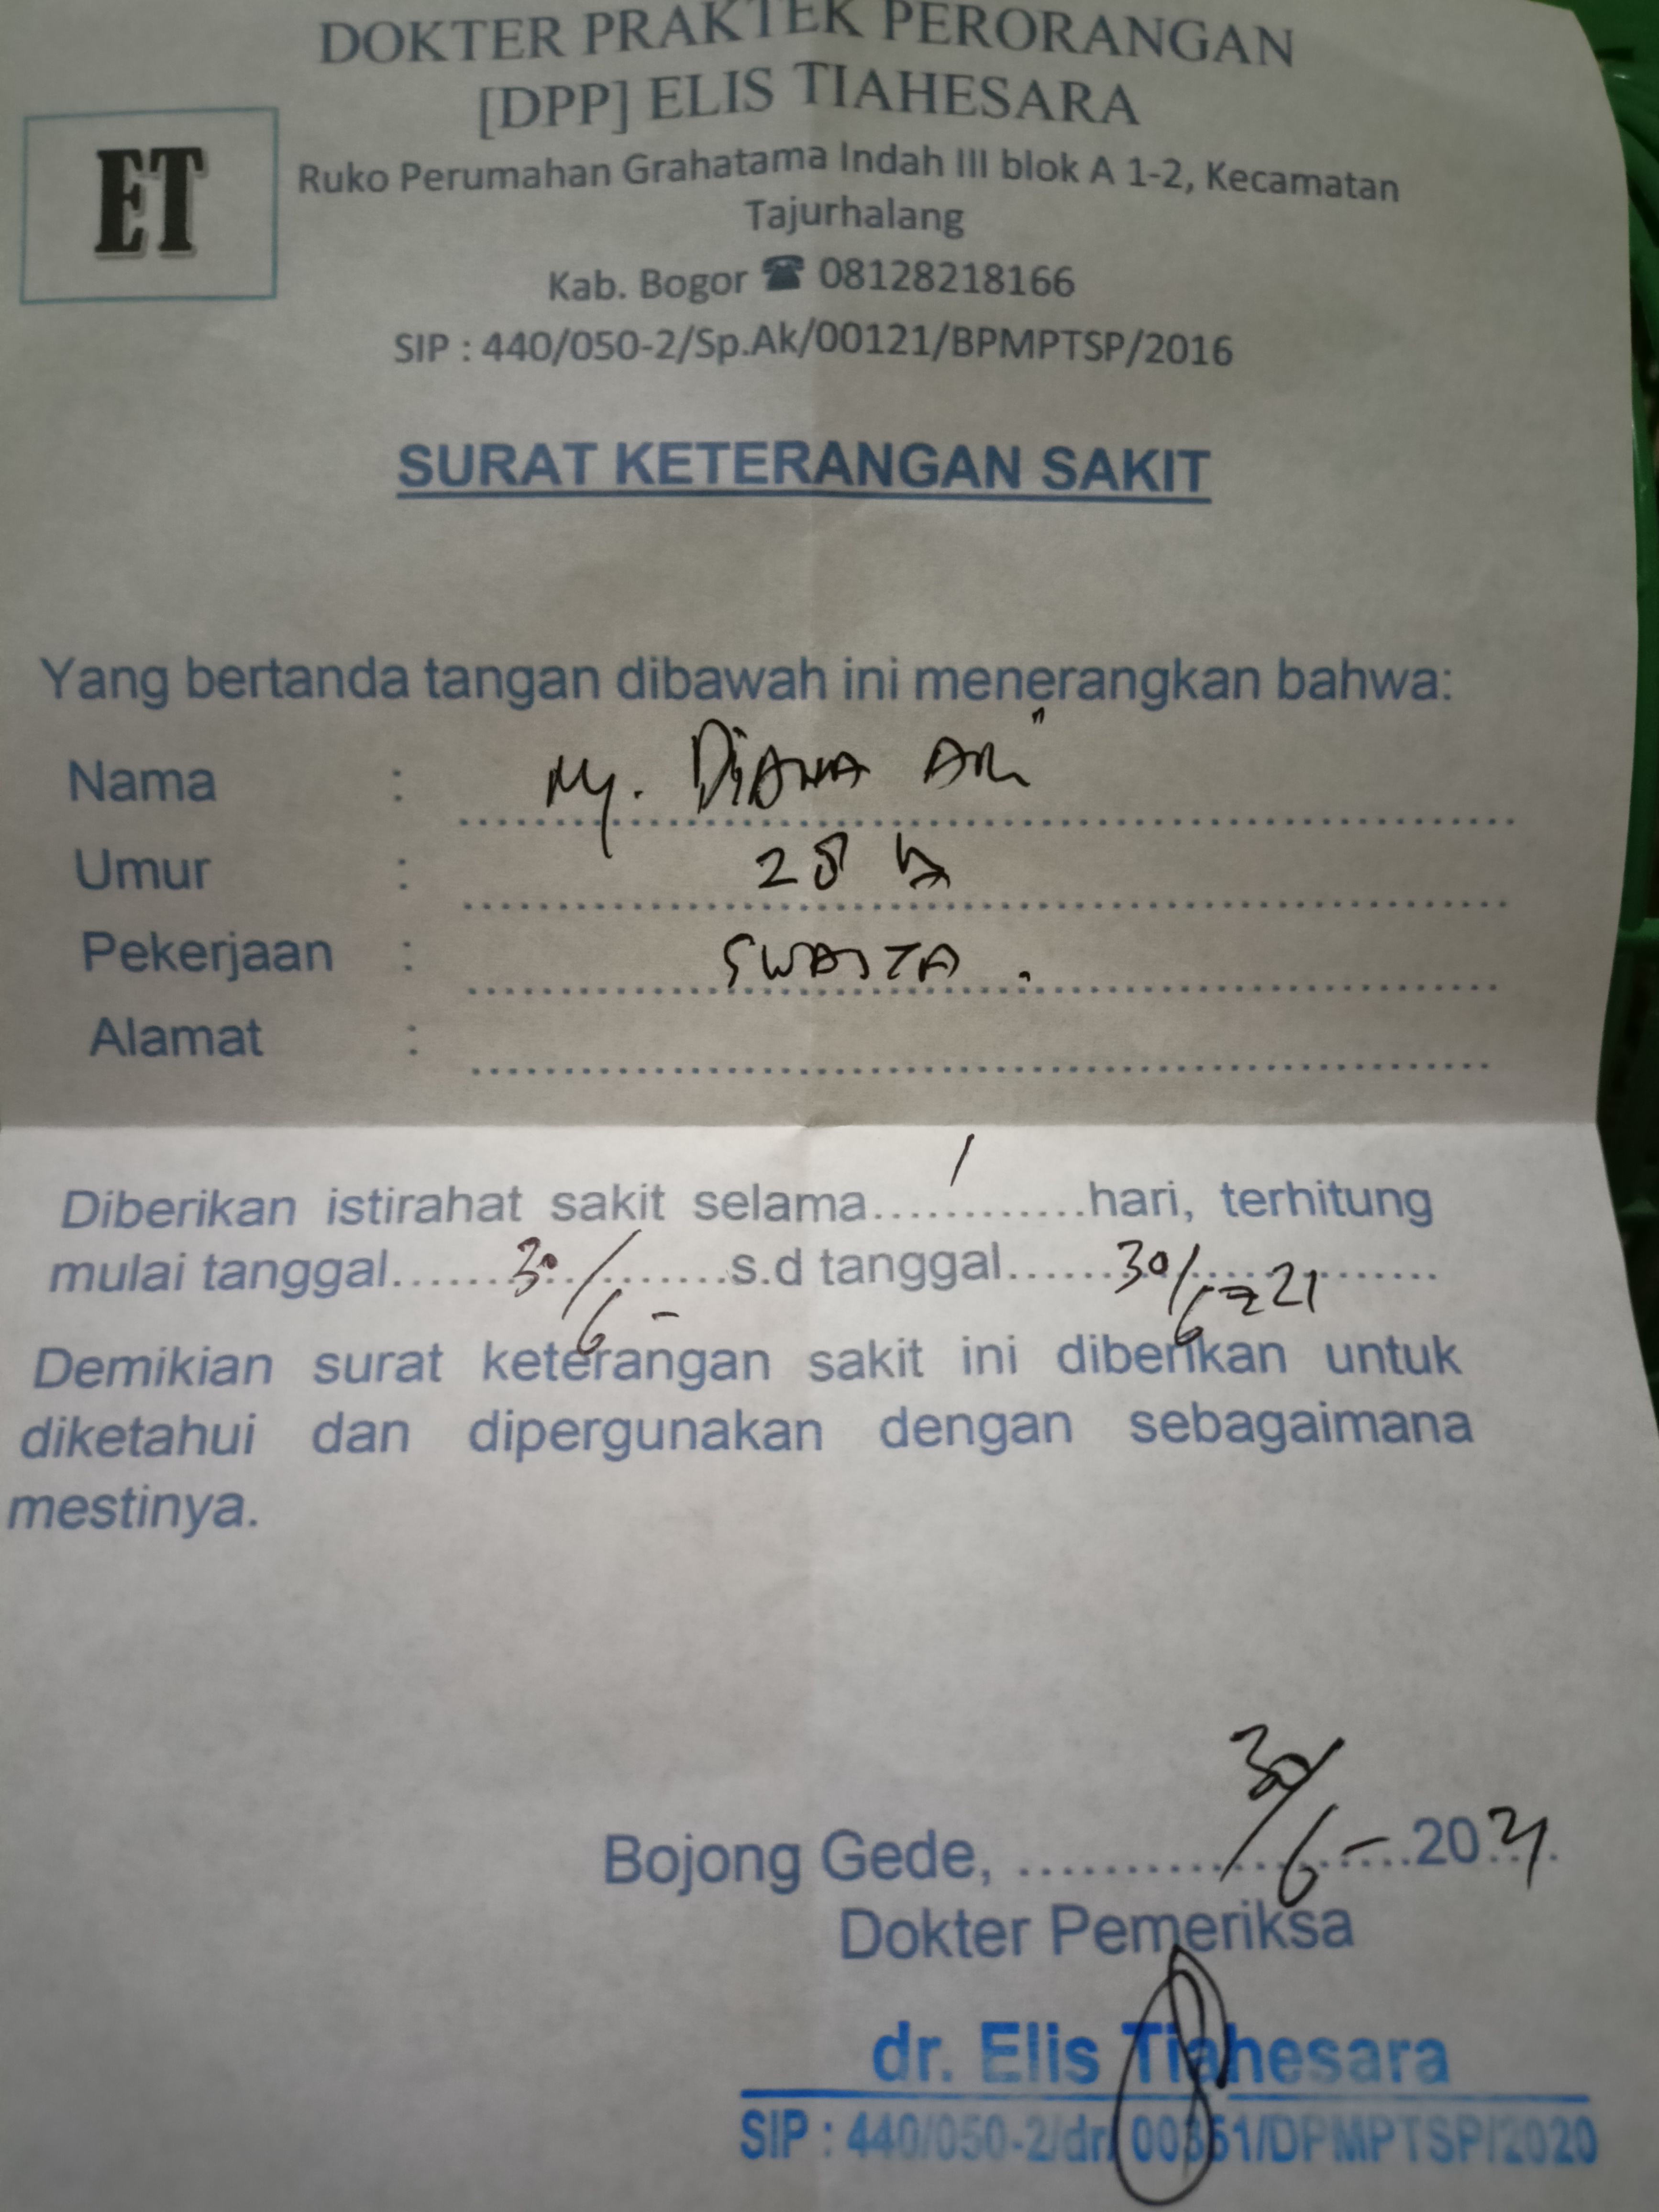 DOKTER PRAKTEK PERORANGAN
[DPP] ELIS TIAHESARA
ET
Ruko Perumahan Grahatama Indah III blok A 1-2, Kecamatan
Tajurhalang
Kab. Bogor ☎ 08128218166
SIP : 440/050-2/Sp.Ak/00121/BPMPTSP/2016
SURAT KETERANGAN SAKIT
Yang bertanda tangan dibawah ini menerangkan bahwa:
Nama : Ny. Diana
Umur : 28
Pekerjaan : SWASTA.
Alamat :
Diberikan istirahat sakit selama 1 hari, terhitung
mulai tanggal 30/6 - s.d tanggal 30/6-21
Demikian surat keterangan sakit ini diberikan untuk
diketahui dan dipergunakan dengan sebagaimana
mestinya.
Bojong Gede, 30/6-2021
Dokter Pemeriksa
dr. Elis Tiahesara
SIP : 440/050-2/dr/00351/DPMPTSP/2020